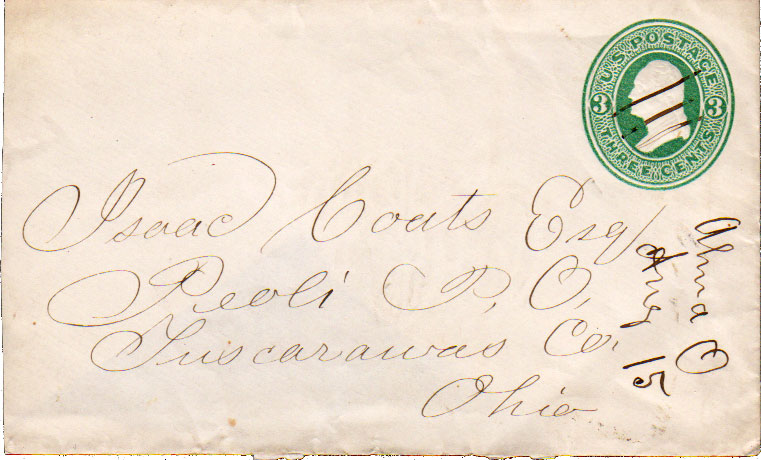 U.S. POSTAGE
3 3
THREE CENTS
Isaac Coats Esq/
Peoli P. O.
Tuscarawas Co.
Ohio
Alma O
Aug 15